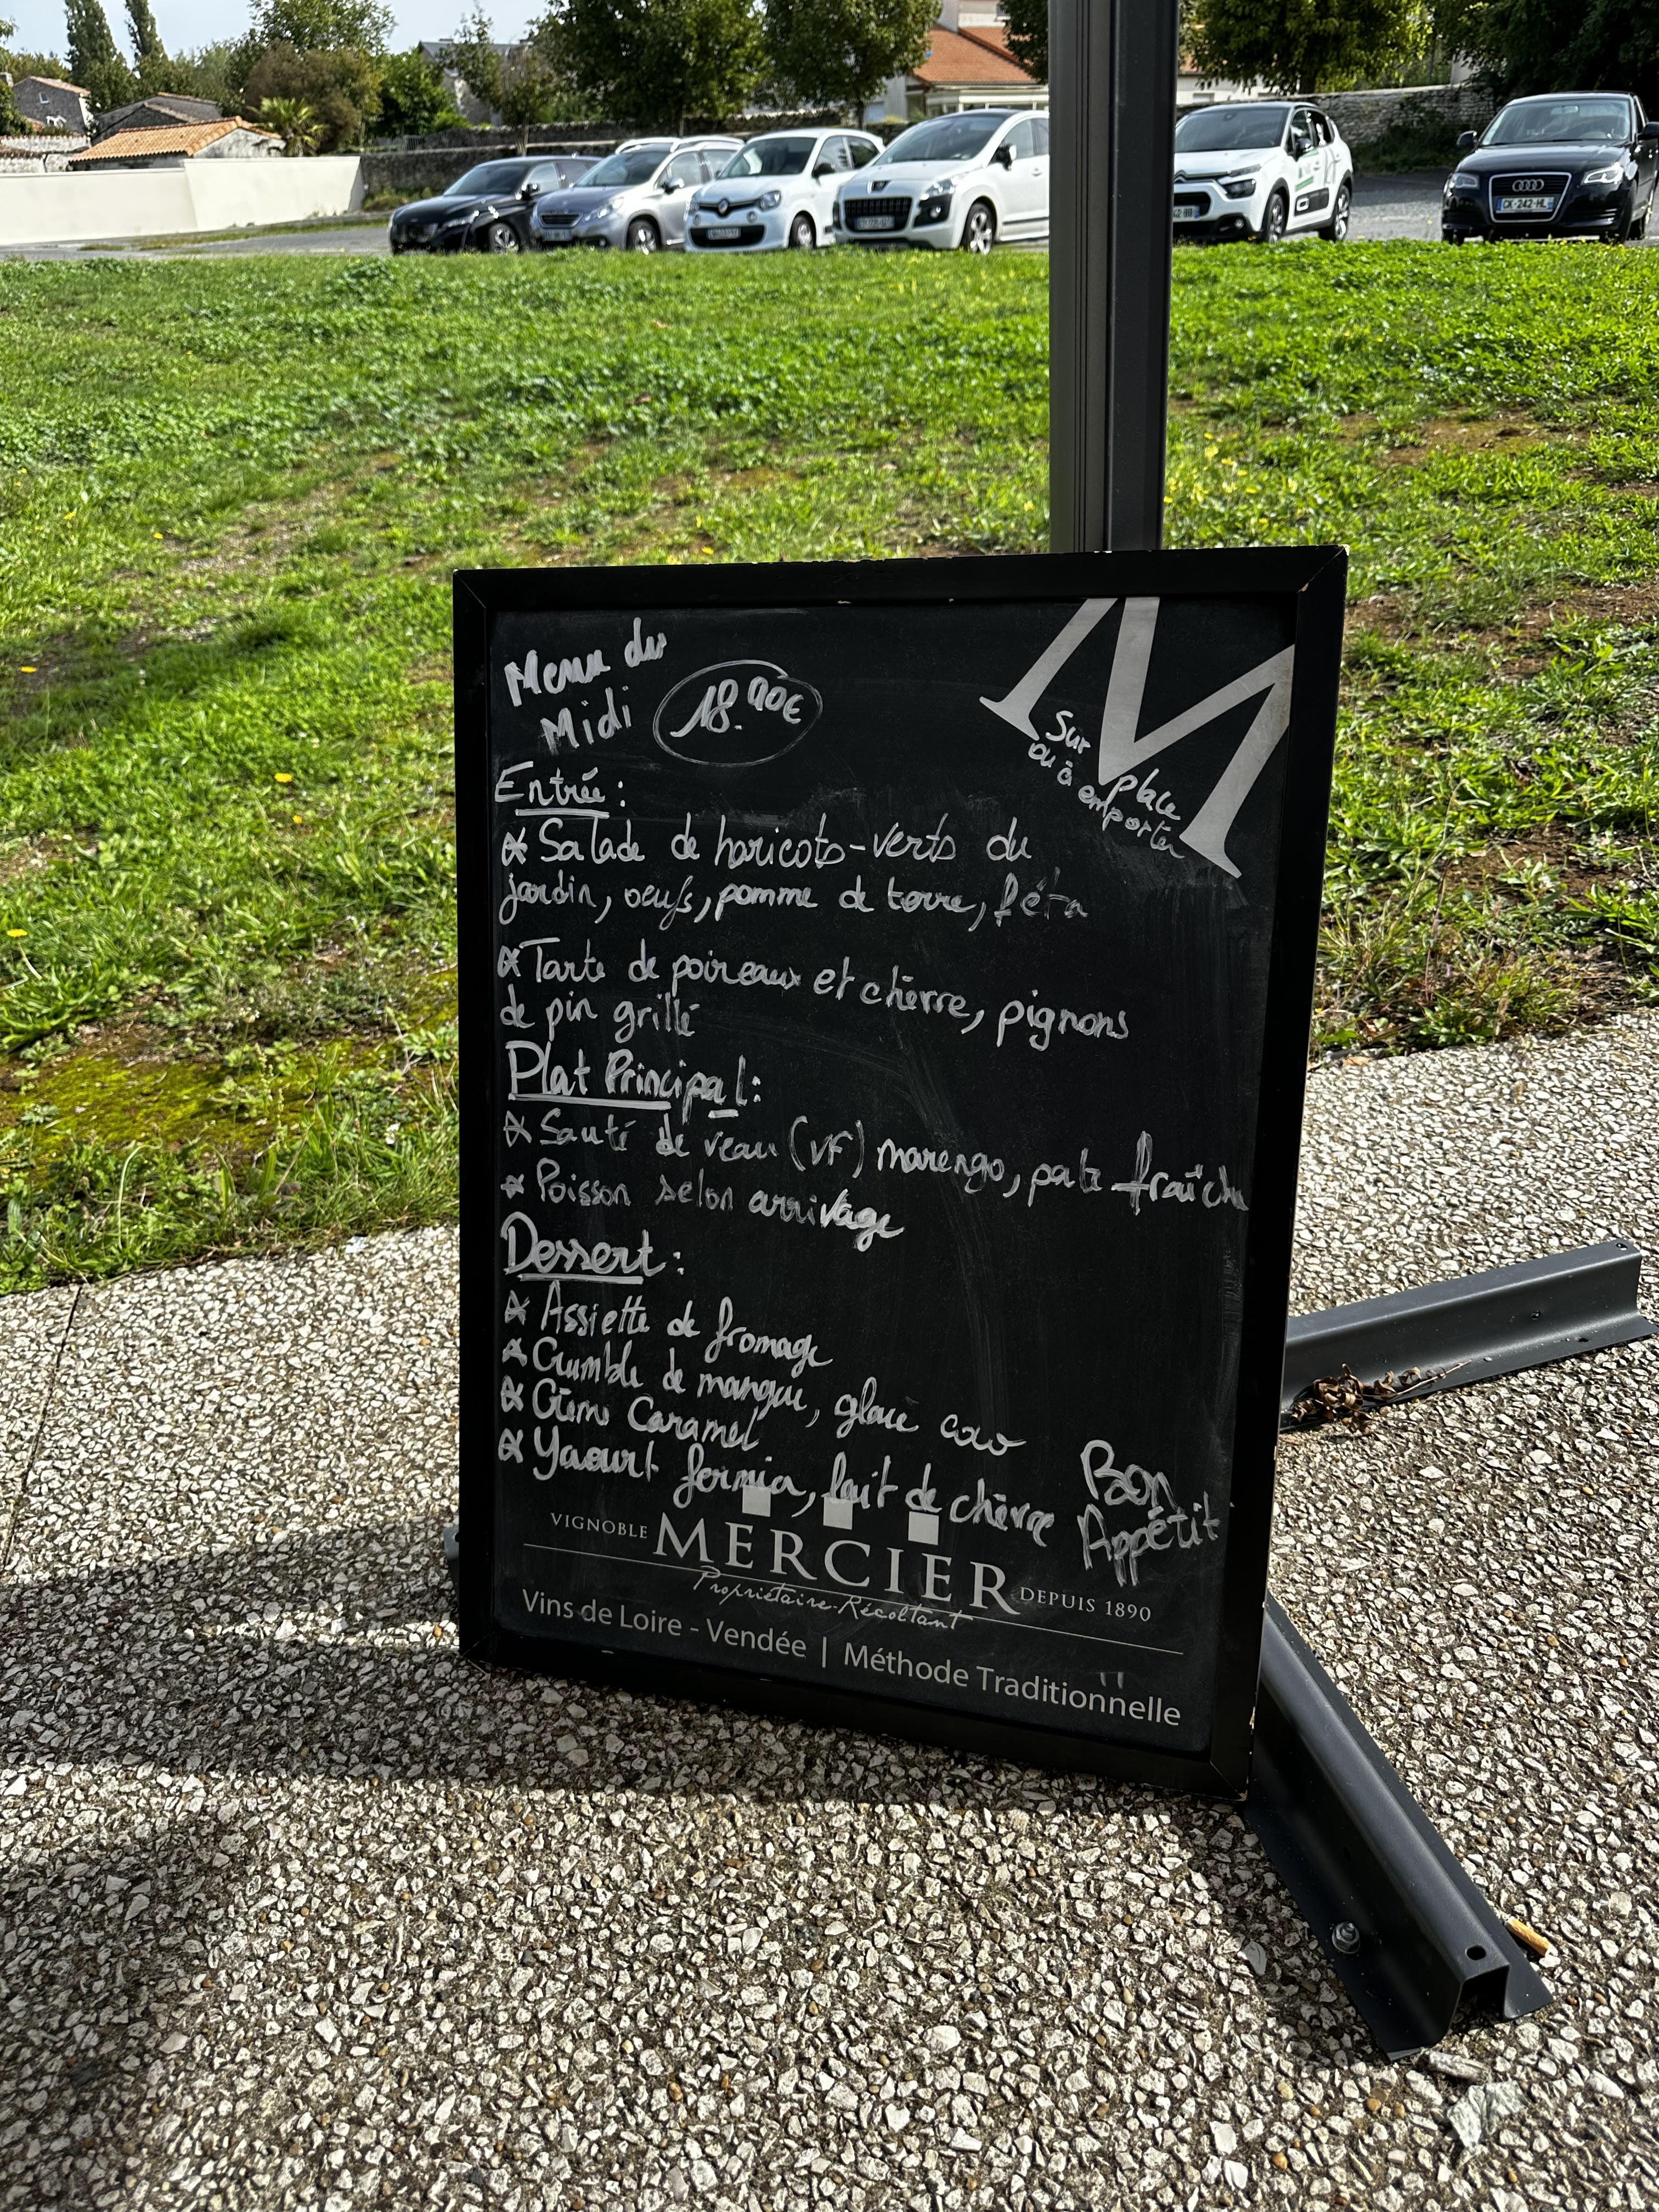 Menu du
Midi
18.90€
M
Sur place
ou à emporter
Entrée:
* Salade de haricots-verts du
jardin, oeufs, pomme de terre, féta
* Tarte de poireaux et chèvre, pignons
de pin grillé
Plat Principal:
* Sauté de veau (VF) marengo, pate fraîche
* Poisson selon arrivage
Dessert:
* Assiette de fromage
* Crumble de mangue, glace coco
* Crème Caramel
* Yaourt fermier, lait de chèvre
Bon
Appétit
VIGNOBLE MERCIER DEPUIS 1890
Propriétaire-Récoltant
Vins de Loire - Vendée | Méthode Traditionnelle
CX-242-HL